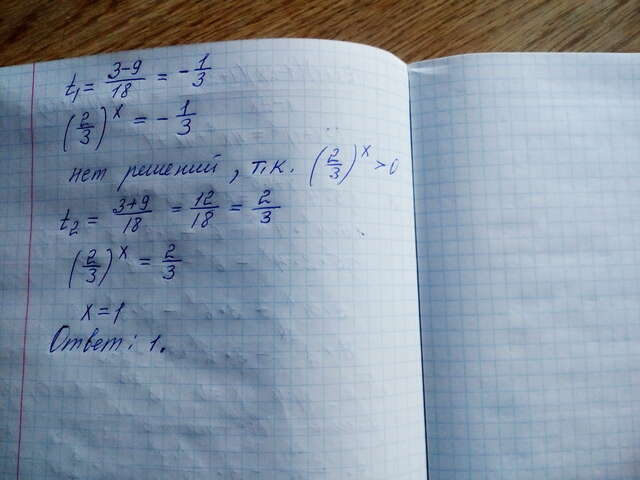 t₁ = (3-9)/18 = - 1/3
(2/3)^x = - 1/3
нет решений, т.к. (2/3)^x > 0
t₂ = (3+9)/18 = 12/18 = 2/3
(2/3)^x = 2/3
x = 1
Ответ: 1.